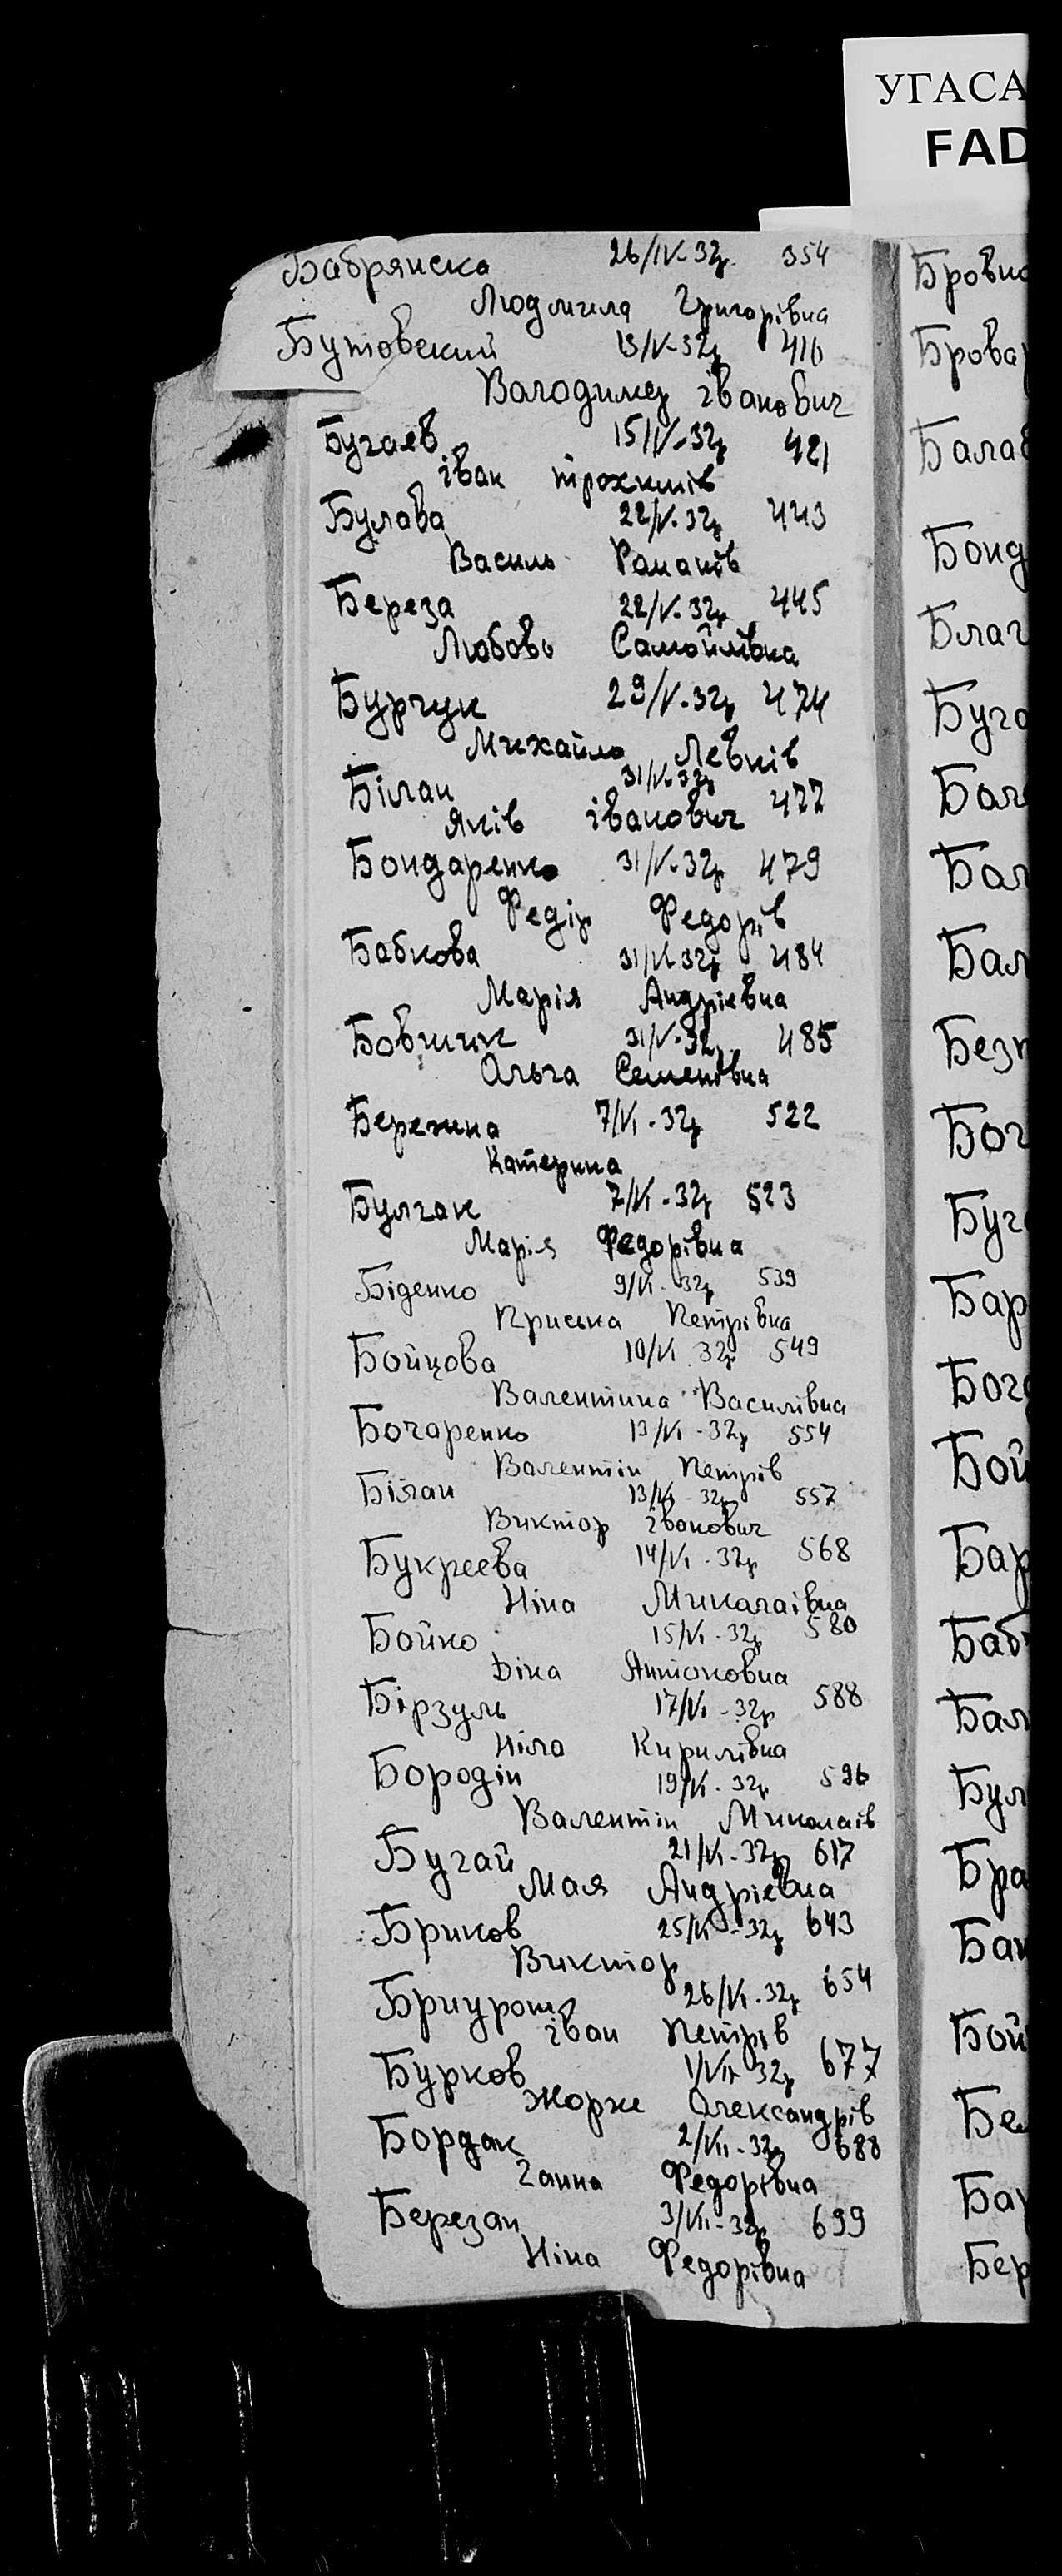 УГАСА
FAD
Бабрянска 26/IV-32р. 354
Людмила Григорівна
Бутовский 13/V-32р 416
Володимер іванович
Бугаев 15/V-32р 421
іван трохимів
Булава 22/V-32р 443
Василь Романів
Береза 22/V-32р 445
Любовь Самойлівна
Бурчук 29/V-32р 474
Михайло Левків
Білан 31/V-32р 477
Яків іванович
Бондаренко 31/V-32р 479
Федір Федорів
Бабкова 31/V-32р 484
Марія Андріевна
Бовшик 31/V-32р 485
Ольга Семенівна
Бережна 7/VI-32р 522
Катерина
Булгак 7/VI-32р 523
Марія Федорівна
Біденко 9/VI-32р 539
Приська Петрівна
Бойцова 10/VI 32р 549
Валентина Василівна
Бочаренко 13/VI-32р 554
Валентін Петрів
Білан 13/VI-32р 557
Виктор іванович
Букреева 14/VI-32р 568
Ніна Миколаівна
Бойко 15/VI-32р 580
Діна Антоновна
Бірзуль 17/VI-32р 588
Ніла Кирилівна
Бородін 19/VI-32р 596
Валентін Миколаів
Бугай 21/VI-32р 617
Мая Андріевна
Бриков 25/VI-32р 643
Виктор
26/VI-32р 654
іван Петрів
Бурков 1/VII 32р 677
Жорже Олександрів
Бордак 2/VII-32р 688
Ганна Федорівна
Березан 3/VII-32р 699
Ніна Федорівна
Бровко
Брова
Бала
Бонд
Благ
Буга
Бал
Бал
Бал
Без
Бог
Буг
Бар
Бог
Бой
Бар
Баб
Бал
Бул
Бра
Бан
Бой
Бе
Ба
Бер